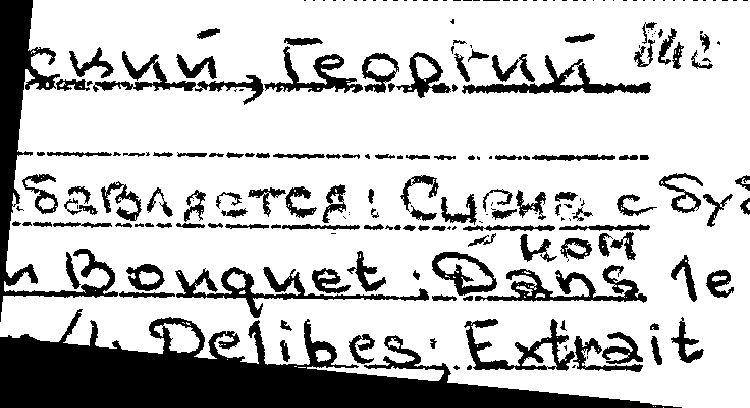 ский, Георгий
бавляется: Сцена с буб
ном
n Bouquet : Dans le
/ L. Delibes; Extrait